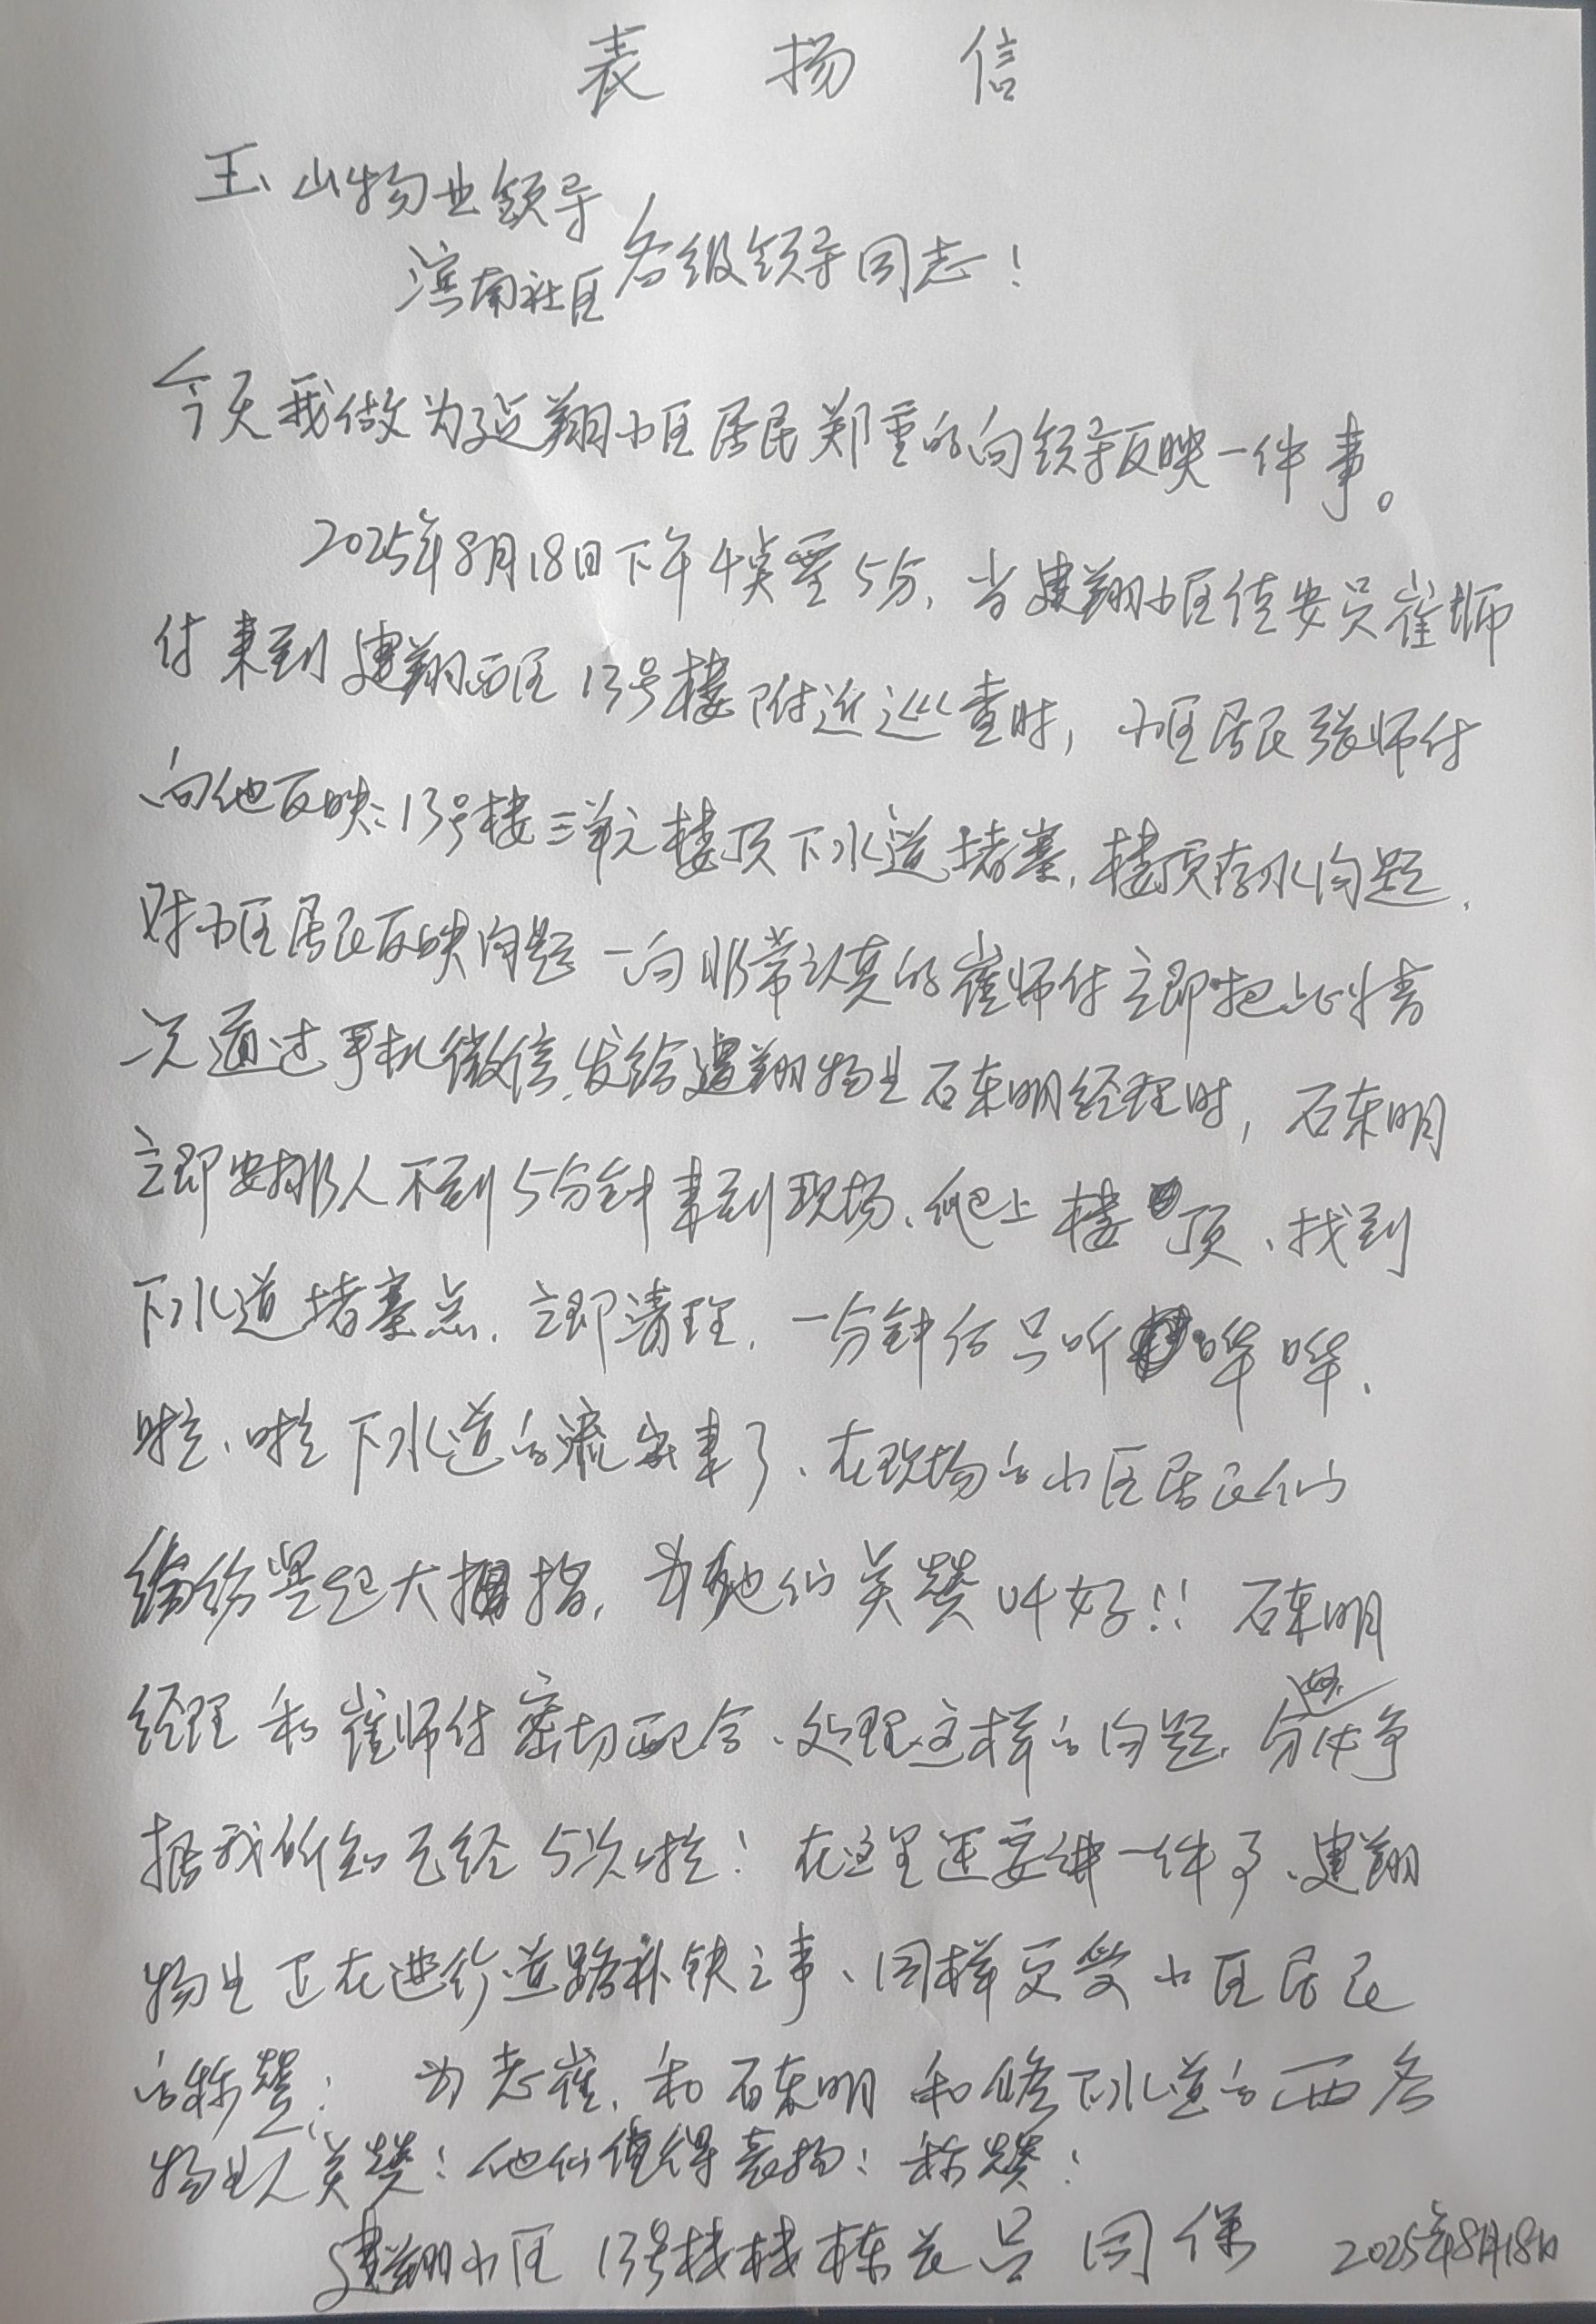 表扬信
玉山物业领导
滨南社区各级领导同志！
今天我做为建翔小区居民郑重的向领导反映一件事。
2025年8月18日下午4点零5分，当建翔小区保安员崔师
付来到建翔西区13号楼附近巡查时，小区居民张师付
向他反映：13号楼三单元楼顶下水道堵塞，楼顶存水问题，
对小区居民反映问题一向非常认真的崔师付立即把此情
况通过手机微信，发给建翔物业石东明经理时，石东明
立即安排人不到5分钟来到现场、爬上楼顶、找到
下水道堵塞点，立即清理，一分钟后只听哗哗、
啦、啦下水道的流出来了、在现场的小区居民们
纷纷竖起大拇指，为他们美赞叫好！！石东明
经理和崔师付密切配合、处理这样的问题，
据我所知已经5次啦！在这里还要讲一件事、建翔
物业正在进行道路补缺之事、同样更受小区居民
的称赞！为老崔，和石东明和修下水道的两名
物业人美赞！他们值得表扬！称赞！
建翔小区13号楼楼栋长吕同保 2025年8月18日